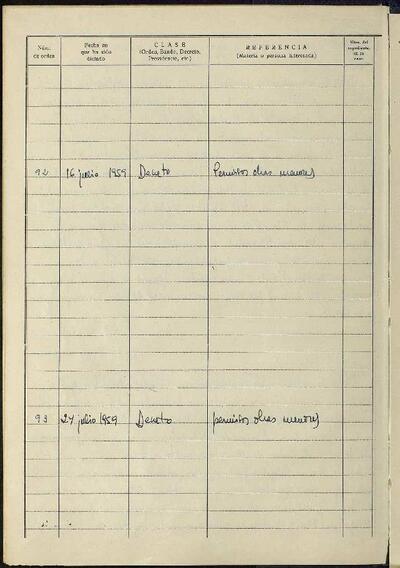 Núm. de orden
Fecha en que ha sido dictado
CLASE
(Orden, Bando, Decreto, Providencia, etc.)
REFERENCIA
(Materia o persona interesada)
Núm. del expediente, en su caso
92 16 julio 1959 Decreto Permisos obras menores
93 27 julio 1959 Decreto permisos obras menores